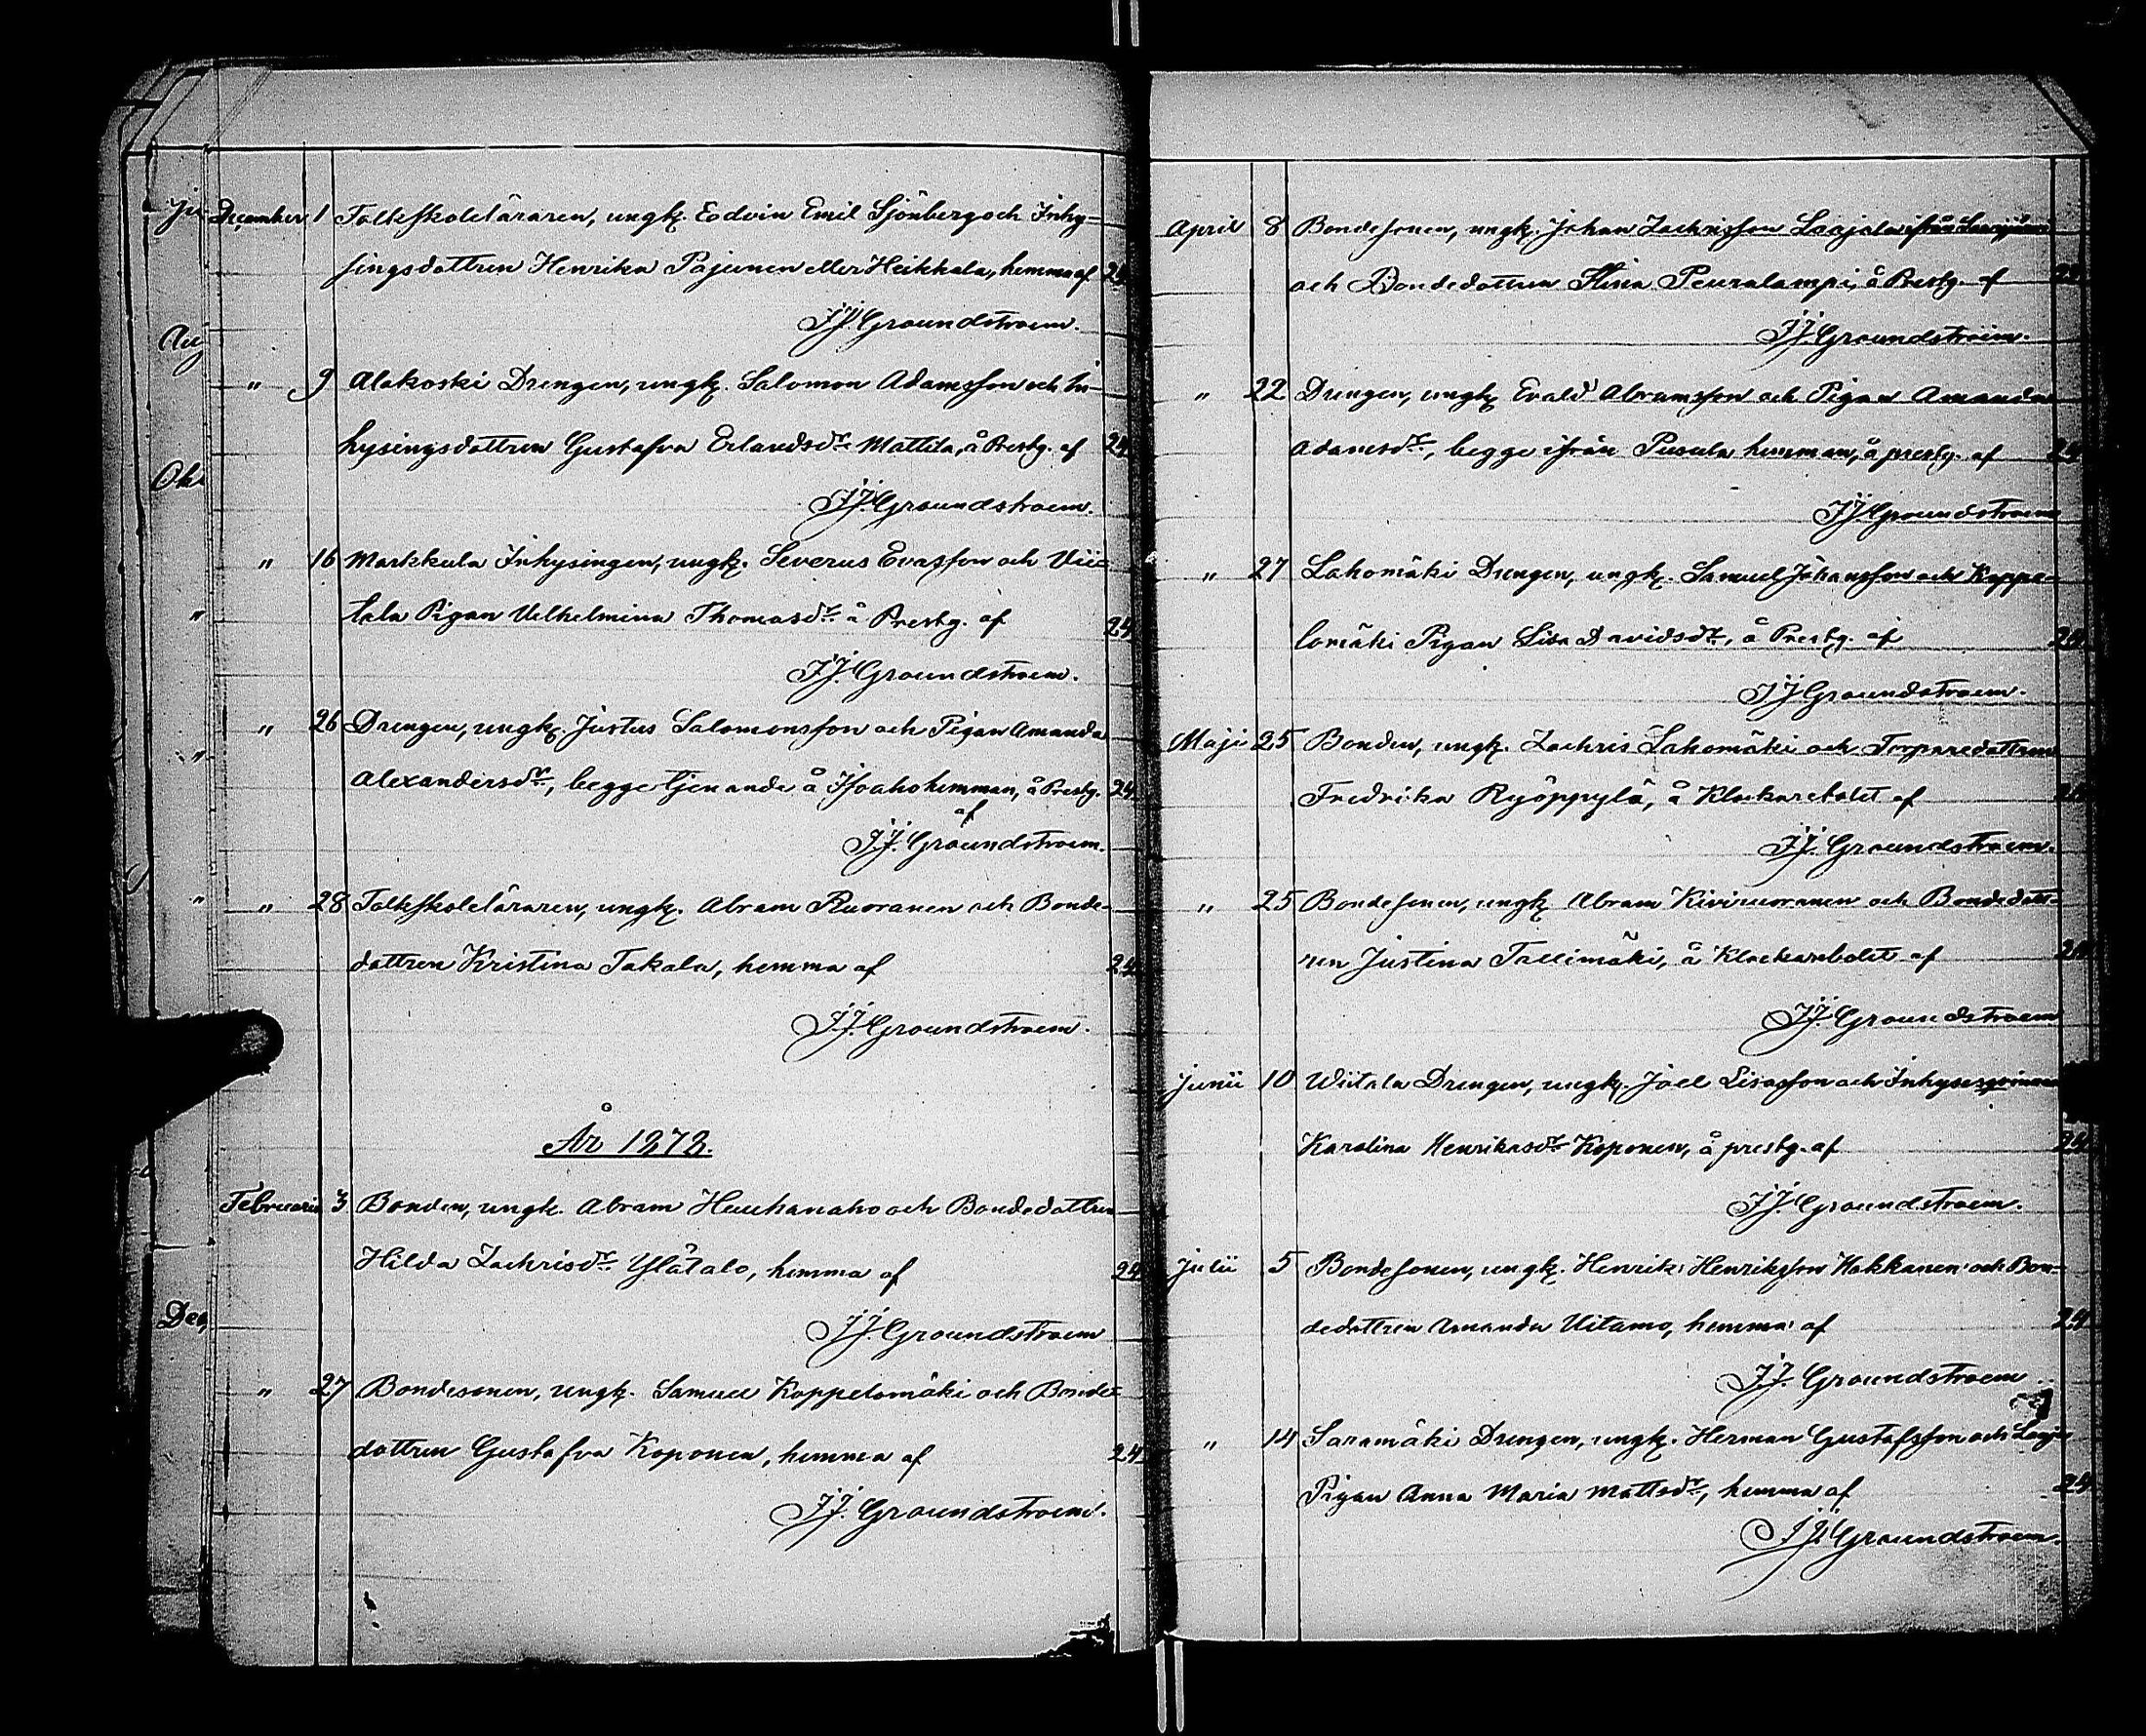 December 1 Folkskoleläraren, ungk. Edvin Emil Sjönberg och Inhy=
singsdottren Henrika Pajunen eller Heikkala, hemma af 24
J.J. Groundstroem.
" 9 Alakoski Drengen, ungk. Salomon Adamsson och In-
hysingsdottren Gustafva Erlandsdr. Mattila, å Prestg. af 24
J.J. Groundstroem.
" 16 Markkula Inhysingen, ungk. Severus Evasson och Vii=
tala Pigan Vilhelmina Thomasdr. å Prestg. af 24
J.J. Groundstroem.
" 26 Drengen, ungk. Justus Salomonsson och Pigan Amanda
Alexandersdr., begge tjenande å Isoaho hemman, å Prestg. 24
af
J.J. Groundstroem.
" 28 Folkskoleläraren, ungk. Abram Ruoranen och Bonde-
dottren Kristina Takala, hemma af 24
J.J. Groundstroem.
År 1878.
Februarii 3 Bonden, ungk. Abram Heuhanaho och Bondedottren
Hilda Zachrisdr. Ylätalo, hemma af 24
J.J. Groundstroem
" 27 Bondesonen, ungk. Samuel Koppelomäki och Bonde=
dottren Gustafva Koponen, hemma af 24
J.J. Groundstroem.
April 8 Bondesonen, ungk. Johan Zachrisson Laajala ifrån
och Bondedottren Stina Peuralampi, å Prestg. af 24
J.J. Groundstroem.
" 22 Drengen, ungk. Evald Abramsson och Pigan Amanda
Adamsdr., begge ifrån Pusula hemman, å prestg. af 24
J.J. Groundstroem
" 27 Lahomäki Drengen, ungk. Samuel Johansson och Koppe-
lomäki Pigan Lisa Davidsdr., å Prestg. af 24
J.J. Groundstroem.
Maji 25 Bonden, ungk. Zachris Lahomäki och Torparedottren
Fredrika Ryöppylä, å Klockarebolet af 24
J.J. Groundstroem.
" 25 Bondesonen, ungk. Abram Kiviruoranen och Bondedott-
ren Justina Tallimäki, å Klockarebolet af 24
J.J. Groundstroem
Junii 10 Wiitala Drengen, ungk. Joel Lisasson och Inhysesqvinnan
Karolina Henrikasdr. Koponen, å prestg. af 24
J.J. Groundstroem.
Julii 5 Bondesonen, ungk. Henrik Henriksson Hakkanen och Bon-
dedottren Amanda Uitamo, hemma af 24
J.J. Groundstroem
" 14 Saramäki Drengen, ungk. Herman Gustafsson och
Pigan Anna Maria Mattsdr., hemma af 24
J.J. Groundstroem.